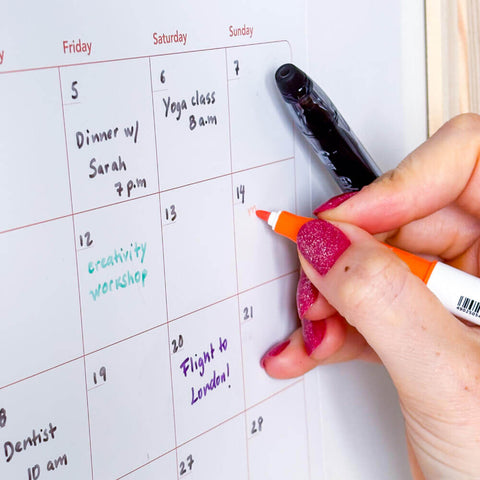 Friday Saturday Sunday
5 6 7
Dinner w/
Sarah
7 p.m
Yoga class
8 a.m
12 13 14
creativity
workshop
19 20 21
Flight to
London!
Dentist
10 am
27 28